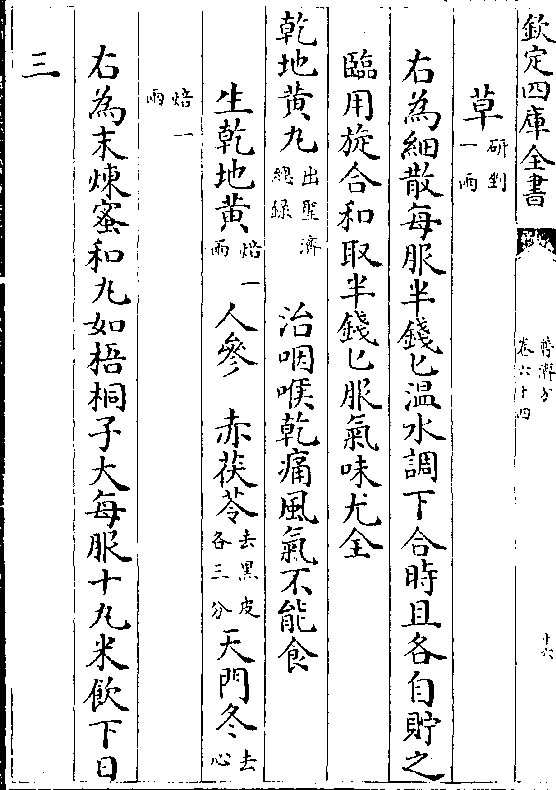 欽定四庫全書
普濟方
卷六十四
十六
草研剉一兩
右為細散每服半錢匕温水調下合時且各自貯之
臨用旋合和取半錢匕服氣味尤全
乾地黄丸出聖濟總録　治咽喉乾痛風氣不能食
生乾地黄焙一兩　人參　赤茯苓去黑皮各三分　天門冬去心
焙一兩
右為末煉蜜和丸如梧桐子大每服十丸米飲下日
三